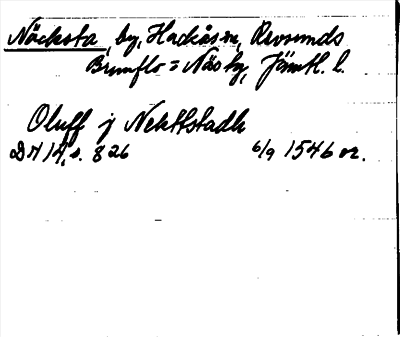 Näcksta, by, Hackås sn, Revsunds
Brunflo o Näs tg, Jämtl. l.
Oluff j Nekttstadh
DN 14, s. 826 6/9 1546 or.